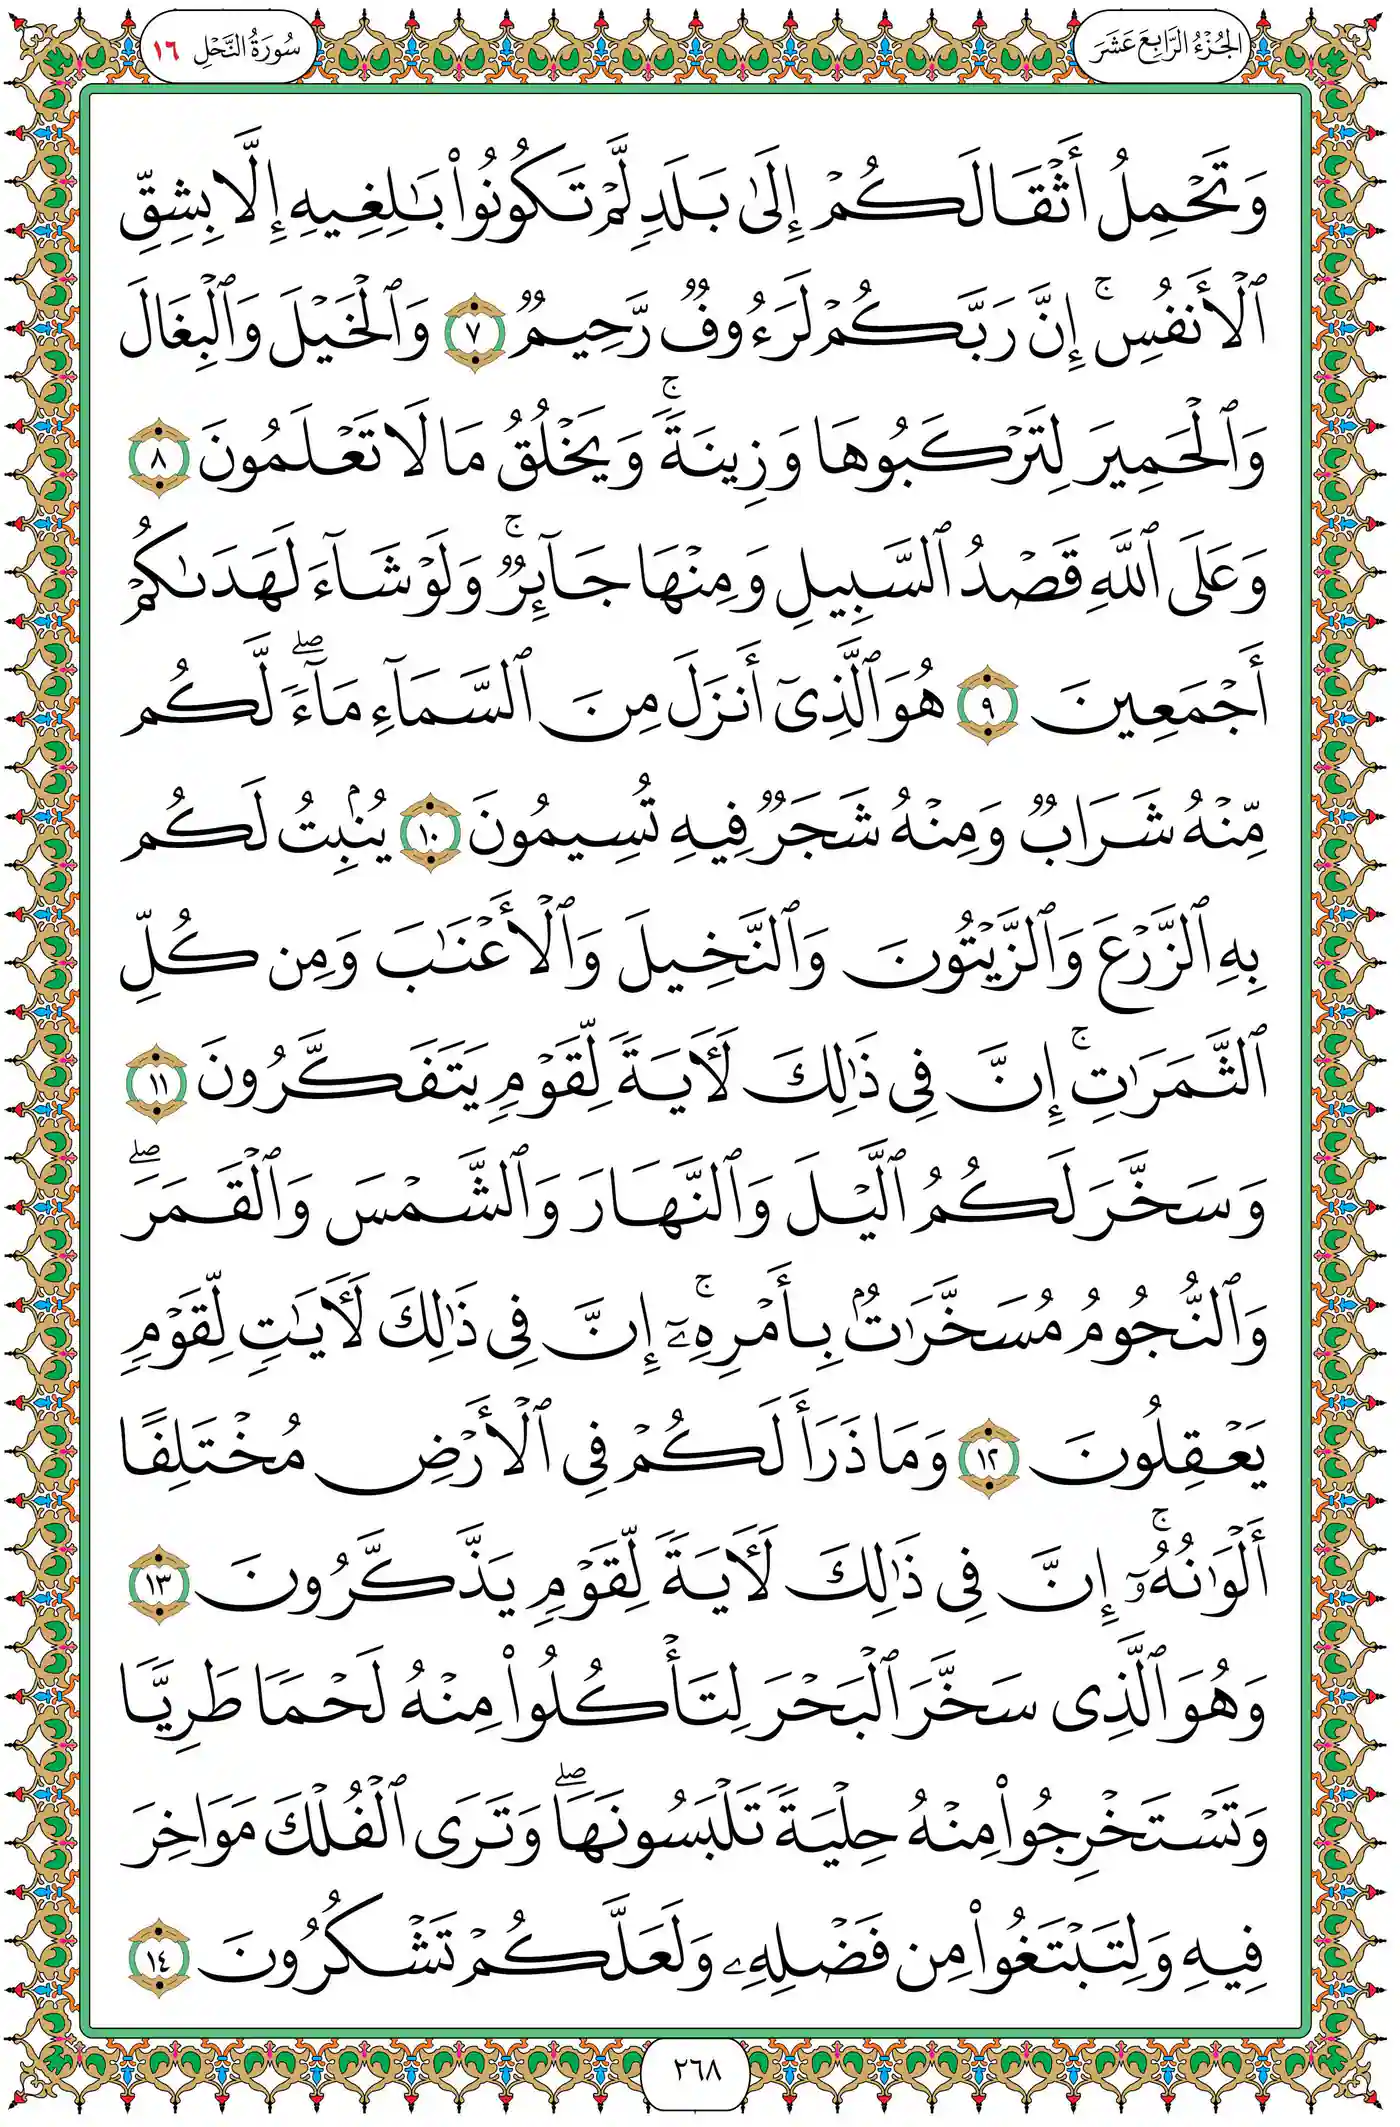 الجُزْءُ الرَّابِعَ عَشَرَ
سُورَةُ النَّحْلِ ١٦
وَتَحْمِلُ أَثْقَالَكُمْ إِلَىٰ بَلَدٍ لَّمْ تَكُونُوا۟ بَـٰلِغِيهِ إِلَّا بِشِقِّ
ٱلْأَنفُسِ ۚ إِنَّ رَبَّكُمْ لَرَءُوفٌ رَّحِيمٌ ٧ وَٱلْخَيْلَ وَٱلْبِغَالَ
وَٱلْحَمِيرَ لِتَرْكَبُوهَا وَزِينَةً ۚ وَيَخْلُقُ مَا لَا تَعْلَمُونَ ٨
وَعَلَى ٱللَّهِ قَصْدُ ٱلسَّبِيلِ وَمِنْهَا جَآئِرٌ ۚ وَلَوْ شَآءَ لَهَدَىٰكُمْ
أَجْمَعِينَ ٩ هُوَ ٱلَّذِىٓ أَنزَلَ مِنَ ٱلسَّمَآءِ مَآءً ۖ لَّكُم
مِّنْهُ شَرَابٌ وَمِنْهُ شَجَرٌ فِيهِ تُسِيمُونَ ١٠ يُنۢبِتُ لَكُم
بِهِ ٱلزَّرْعَ وَٱلزَّيْتُونَ وَٱلنَّخِيلَ وَٱلْأَعْنَـٰبَ وَمِن كُلِّ
ٱلثَّمَرَٰتِ ۚ إِنَّ فِى ذَٰلِكَ لَـَٔايَةً لِّقَوْمٍ يَتَفَكَّرُونَ ١١
وَسَخَّرَ لَكُمُ ٱلَّيْلَ وَٱلنَّهَارَ وَٱلشَّمْسَ وَٱلْقَمَرَ ۖ
وَٱلنُّجُومُ مُسَخَّرَٰتٌۢ بِأَمْرِهِۦٓ ۚ إِنَّ فِى ذَٰلِكَ لَـَٔايَـٰتٍ لِّقَوْمٍ
يَعْقِلُونَ ١٢ وَمَا ذَرَأَ لَكُمْ فِى ٱلْأَرْضِ مُخْتَلِفًا
أَلْوَٰنُهُۥٓ ۚ إِنَّ فِى ذَٰلِكَ لَـَٔايَةً لِّقَوْمٍ يَذَّكَّرُونَ ١٣
وَهُوَ ٱلَّذِى سَخَّرَ ٱلْبَحْرَ لِتَأْكُلُوا۟ مِنْهُ لَحْمًا طَرِيًّا
وَتَسْتَخْرِجُوا۟ مِنْهُ حِلْيَةً تَلْبَسُونَهَا ۖ وَتَرَى ٱلْفُلْكَ مَوَاخِرَ
فِيهِ وَلِتَبْتَغُوا۟ مِن فَضْلِهِۦ وَلَعَلَّكُمْ تَشْكُرُونَ ١٤
٢٦٨